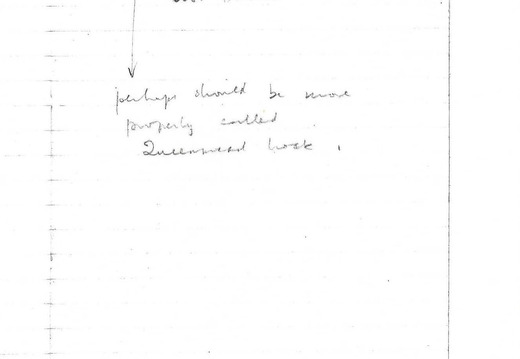 perhaps should be more
properly called
Queensmead book.